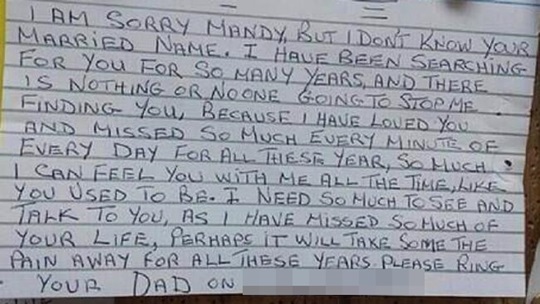 I AM SORRY MANDY, BUT I DON'T KNOW YOUR
MARRIED NAME. I HAVE BEEN SEARCHING
FOR YOU FOR SO MANY YEARS, AND THERE
IS NOTHING OR NOONE GOING TO STOP ME
FINDING YOU, BECAUSE I HAVE LOVED YOU
AND MISSED SO MUCH EVERY MINUTE OF
EVERY DAY FOR ALL THESE YEAR, SO MUCH
I CAN FEEL YOU WITH ME ALL THE TIME, LIKE
YOU USED TO BE. I NEED SO MUCH TO SEE AND
TALK TO YOU, AS I HAVE MISSED SO MUCH OF
YOUR LIFE, PERHAPS IT WILL TAKE SOME THE
PAIN AWAY FOR ALL THESE YEARS PLEASE RING
YOUR DAD ON